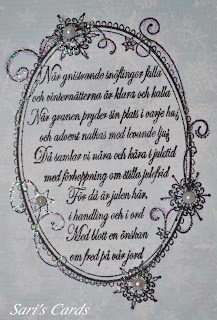 När gnistrande snöflingor falla
och vinternätterna är klara och kalla
När granen pryder sin plats i varje hus
och advent nalkas med levande ljus
Då samlas vi nära och kära i juletid
med förhoppning om stilla julefrid
För då är julen här,
i handling och i ord
Med blott en önskan
om fred på vår jord
Sari's Cards